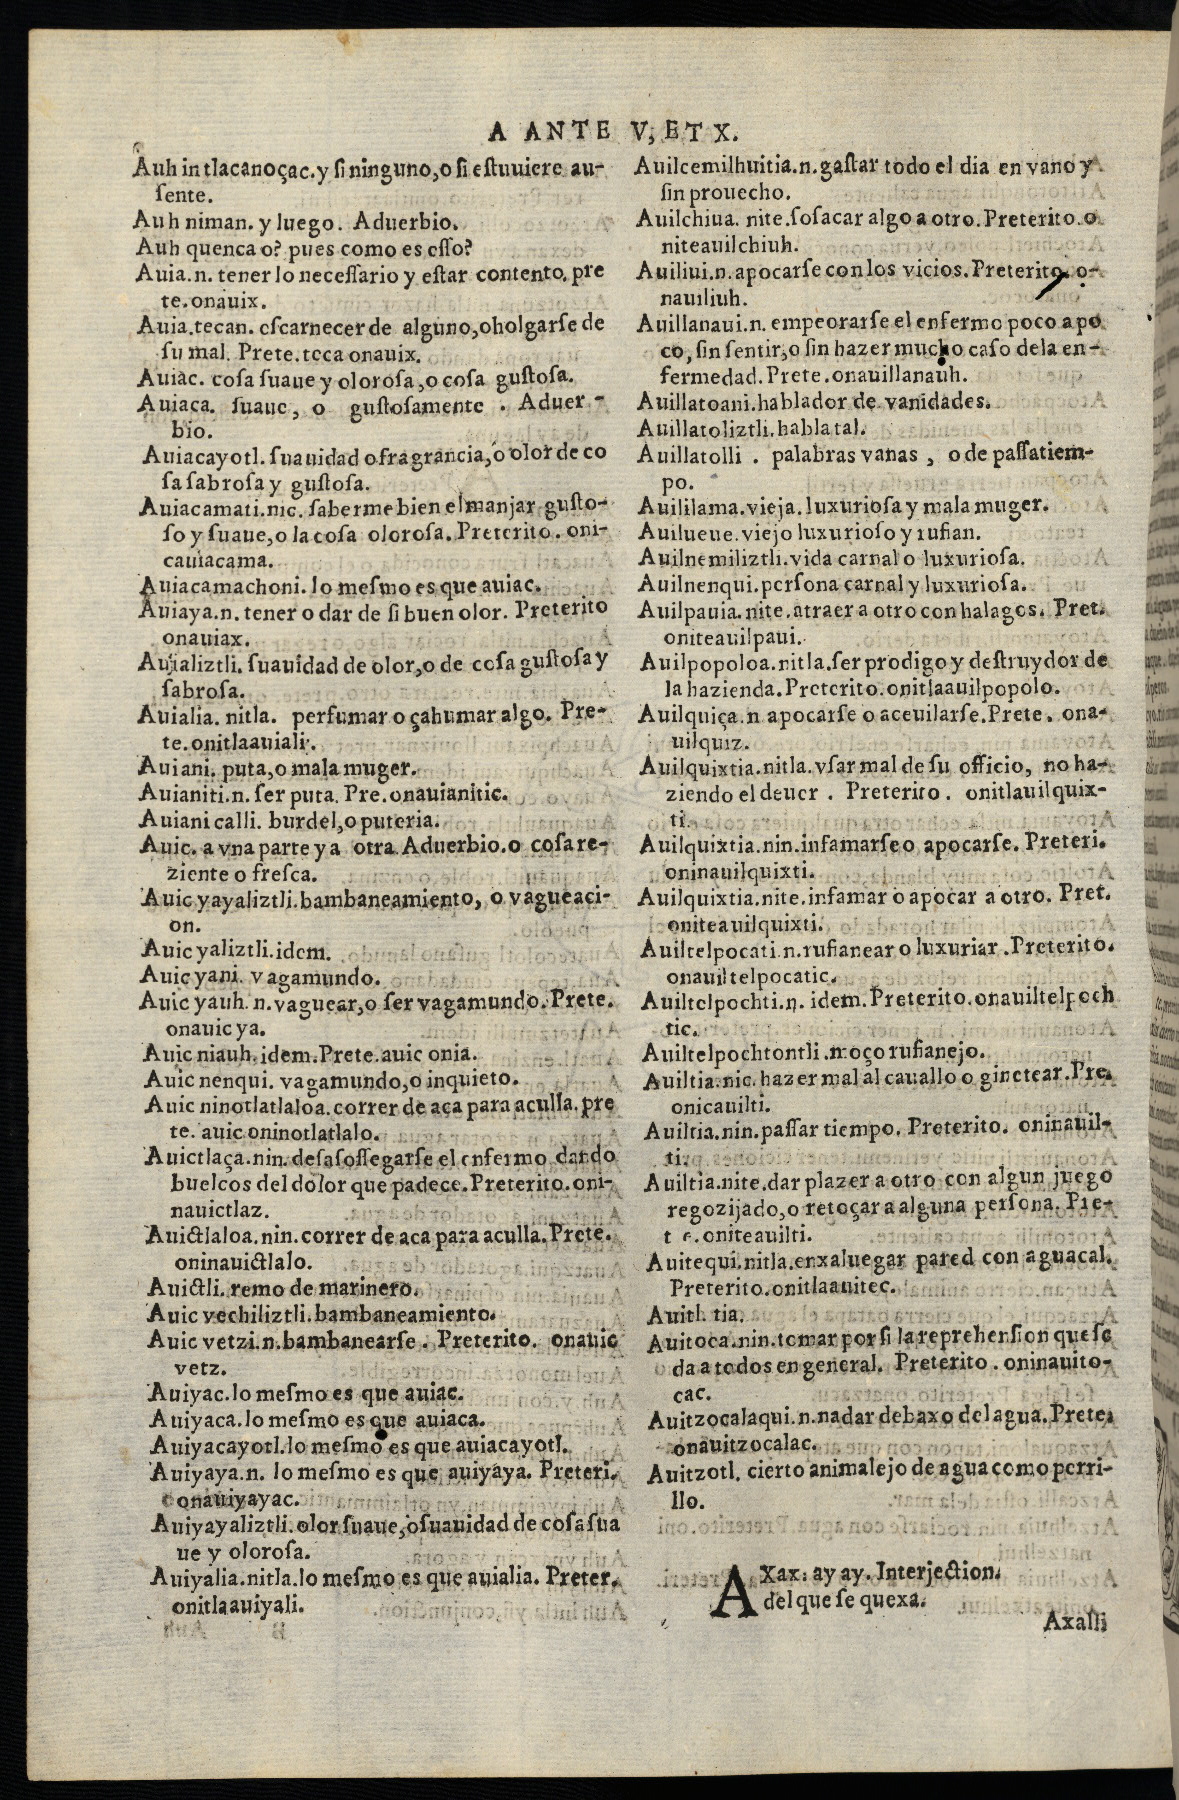 A ANTE V, ET X.
Auh in tlacanoçac. y ſi ninguno, o ſi eſtuuiere au-
ſente.
Auh niman. y luego. Aduerbio.
Auh quenca o? pues como es eſſo?
Auia.n. tener lo neceſſario y eſtar contento. pre
te. onauix.
Auia.tecan. eſcarnecer de alguno, o holgarſe de
ſu mal. Prete. teca onauix.
Auiac. coſa ſuaue y oloroſa, o coſa guſtoſa.
Auiaca. ſuaue, o guſtoſamente. Aduer-
bio.
Auiacayotl. ſuauidad o fragrancia, o olor de co
ſa ſabroſa y guſtoſa.
Auiacamati.nic. ſaberme bien el manjar guſto-
ſo y ſuaue, o la coſa oloroſa. Preterito. oni-
cauiacama.
Auiacamachoni. lo meſmo es que auiac.
Auiaya.n. tener o dar de ſi buen olor. Preterito
onauiax.
Auializtli. ſuauidad de olor, o de coſa guſtoſa y
ſabroſa.
Auialia. nitla. perfumar o çahumar algo. Pre-
te. onitlaauiali.
Auiani. puta, o mala muger.
Auianiti.n. ſer puta. Pre. onauianitic.
Auiani calli. burdel, o puteria.
Auic. a vna parte y a otra. Aduerbio. o coſa re-
ziente o freſca.
Auic yayaliztli. bambaneamiento, o vagueaci-
on.
Auic yaliztli. idem.
Auic yani. vagamundo.
Auic yauh. n. vaguear, o ſer vagamundo. Prete.
onauic ya.
Auic niauh. idem. Prete. auic onia.
Auic nenqui. vagamundo, o inquieto.
Auic ninotlatlaloa. correr de aca para aculla. pre
te. auic oninotlatlalo.
Auictlaça.nin. deſaſoſſegarſe el enfermo dando
buelcos del dolor que padece. Preterito. oni-
nauictlaz.
Auictlaloa. nin. correr de aca para aculla. Prete.
oninauictlalo.
Auictli. remo de marinero.
Auic vechiliztli. bambaneamiento.
Auic vetzi.n. bambanearſe. Preterito. onauic
vetz.
Auiyac. lo meſmo es que auiac.
Auiyaca. lo meſmo es que auiaca.
Auiyacayotl. lo meſmo es que auiacayotl.
Auiyaya.n. lo meſmo es que auiyaya. Preteri.
onauiyayac.
Auiyayaliztli. olor ſuaue, o ſuauidad de coſa ſua
ue y oloroſa.
Auiyalia.nitla. lo meſmo es que auialia. Preter.
onitlaauiyali.
Auilcemilhuitia.n. gaſtar todo el dia en vano y
ſin prouecho.
Auilchiua. nite. ſoſacar algo a otro. Preterito. o
niteauilchiuh.
Auiliui.n. apocarſe con los vicios. Preterito. o-
nauiliuh.
Auillanaui.n. empeorarſe el enfermo poco a po
co, ſin ſentir, o ſin hazer mucho caſo dela en-
fermedad. Prete. onauillanauh.
Auillatoani. hablador de vanidades.
Auillatoliztli. habla tal.
Auillatolli. palabras vanas, o de paſſatiem-
po.
Auililama. vieja. luxurioſa y mala muger.
Auilueue. viejo luxurioſo y rufian.
Auilnemiliztli. vida carnal o luxurioſa.
Auilnenqui. perſona carnal y luxurioſa.
Auilpauia. nite. atraer a otro con halagos. Pret.
oniteauilpaui.
Auilpopoloa. nitla. ſer prodigo y deſtruydor de
la hazienda. Preterito. onitlaauilpopolo.
Auilquiça.n apocarſe o aceuilarſe. Prete. ona-
uilquiz.
Auilquixtia. nitla. vſar mal de ſu officio, no ha-
ziendo el deuer. Preterito. onitlauilquix-
ti.
Auilquixtia. nin. infamarſe o apocarſe. Preteri.
oninauilquixti.
Auilquixtia. nite. infamar o apocar a otro. Pret.
oniteauilquixti.
Auiltelpocati.n. rufianear o luxuriar. Preterito.
onauiltelpocatic.
Auiltelpochti.n. idem. Preterito. onauiltelpoch
tic.
Auiltelpochtontli. moço rufianejo.
Auiltia. nic. hazer mal al cauallo o ginetear. Pre.
onicauilti.
Auiltia. nin. paſſar tiempo. Preterito. oninauil-
ti.
Auiltia. nite. dar plazer a otro con algun juego
regozijado, o retoçar a alguna perſona. Pre-
te. oniteauilti.
Auitequi. nitla. enxaluegar pared con aguacal.
Preterito. onitlaauitec.
Auitl. tia.
Auitoca. nin. tomar por ſi la reprehenſion que ſe
da a todos en general. Preterito. oninauito-
cac.
Auitzocalaqui. n. nadar debaxo del agua. Prete.
onauitzocalac.
Auitzotl. cierto animalejo de agua como perri-
llo.
AXax: ay ay. Interjection.
del que ſe quexa.
Axalli